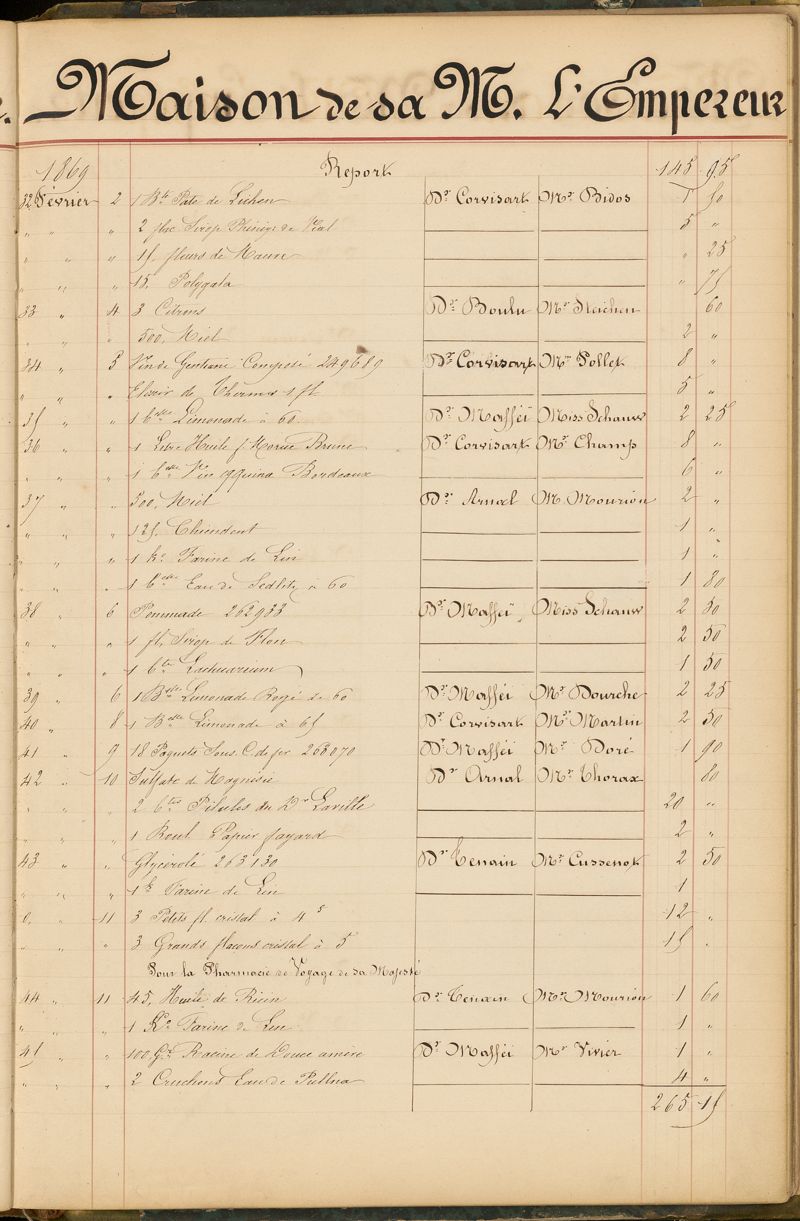 Maison de sa M. L'Empereur
1869 Report 145 95
32 Février 2 1 Bte Pate de Lichen Dr Corvisart Mr Bidos 1 50
" " " 2 flac Sirop Phéniqé de Vial 5 "
" " " 15. fleurs de Mauve " 25
" " " 15. Polygala " 75
33 " 4 3 Citrons Dr Boulu Mr Steichen 60
" " " 500. Miel 2 "
34 " 5 Vin de Gentiane Composé 249689 Dr Corvisart Mr Pollet 8 "
" " " Elixir de 1 fl 5 "
35 " " 1 blle Limonade à 60 Dr Mafféi Miss Schauw 2 25
36 " " 1 Litre Huile f. Morue Brune Dr Corvisart Mr Champ 8 "
" " " 1 blle Vin qquina Bordeaux 6 "
37 " " 500. Miel Dr Arnal M Mourion 2 "
" " " 125. Chiendent 1 "
" " " 1 ko Farine de Lin 1 "
" " " 1 blle Eau de Sedlitz à 60 1 80
38 " 6 Pommade 262933 Dr Mafféi Miss Schauw 2 50
" " " 1 fl. Sirop de Flon 2 50
" " " 1 bte Lactuarium 1 50
39 " 6 1 Blle Limonade Rogé de 60 Dr Mafféi Mr Dourche 2 25
40 " 8 1 Blle Limonade à 65 Dr Corvisart Mr Martin 2 50
41 " 9 18 Paquets Sous. C. de fer 263070 Dr Mafféi Mr Doré 1 90
42 " 10 Sulfate de Magnésie Dr Arnal Mr Thorax 80
" " " 2 btes Pilules du Dr Laville 20 "
" " " 1 Roul. Papier fayard 2 "
43 " " Glycérolé 263130 Dr Tenain Mr Cussenot 2 50
" " " 1 k Farine de Lin 1
" " 11 3 Petits fl. cristal à 4 12 "
" " " 3 Grands flacons cristal à 5 15 "
Pour la Pharmacie de Voyage de sa Majesté
44 " 11 45. Huile de Ricin Dr Tenain Mr Mourion 1 60
" " " 1 Ko Farine de Lin 1 "
45 " " 100 Gr Racine de Douce amère Dr Mafféi Mr Vivier 1 "
" " " 2 Cruchons Eau de Pullna 4 "
265 15